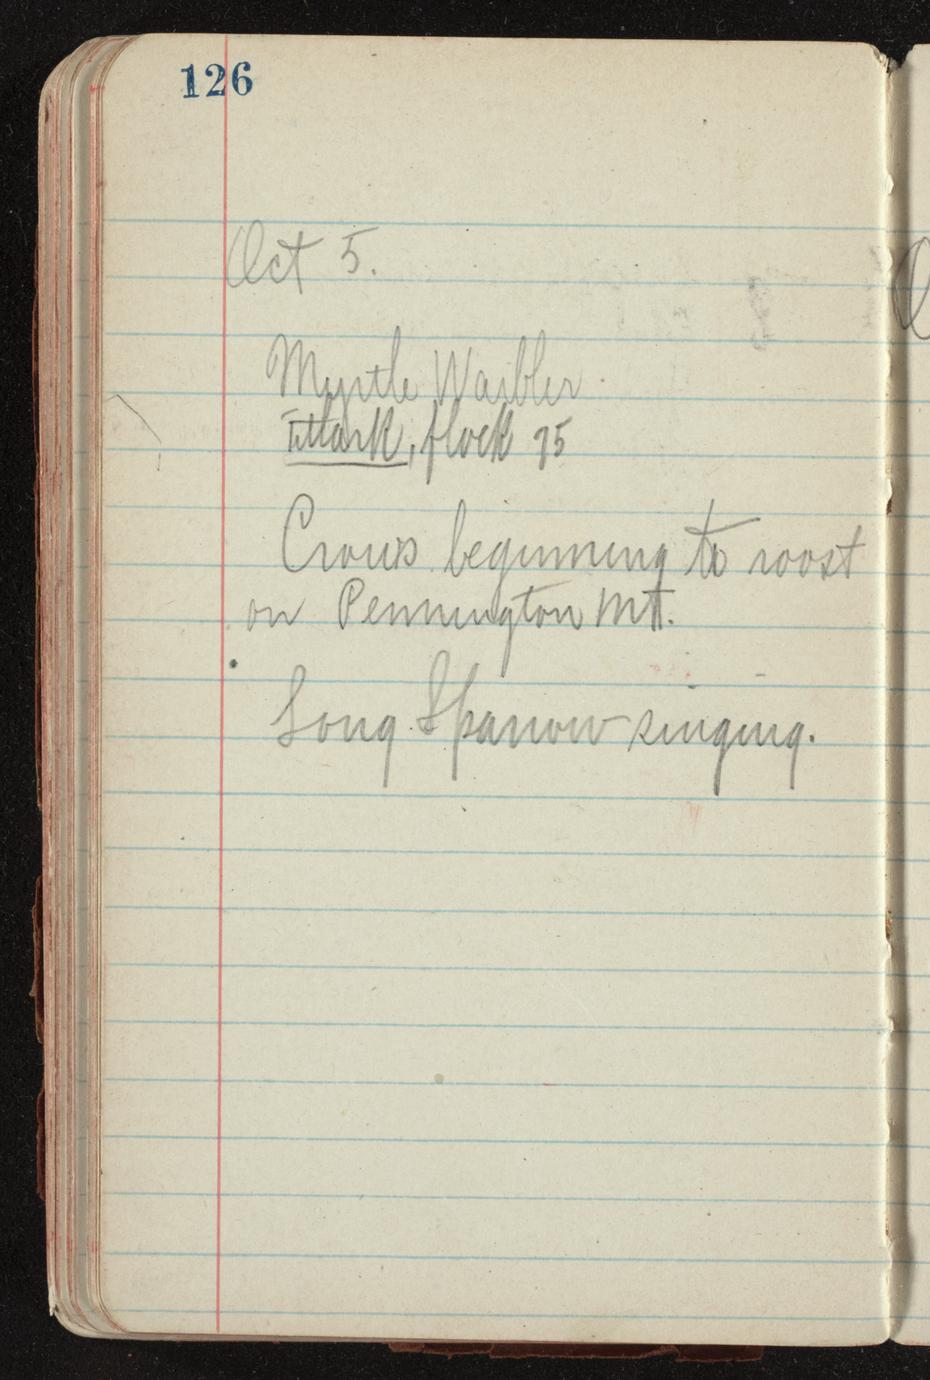 126
Oct 5.
Myrtle Warbler
Titlark, flock 75
Crows beginning to roost
on Pennington Mt.
Song Sparrow singing.